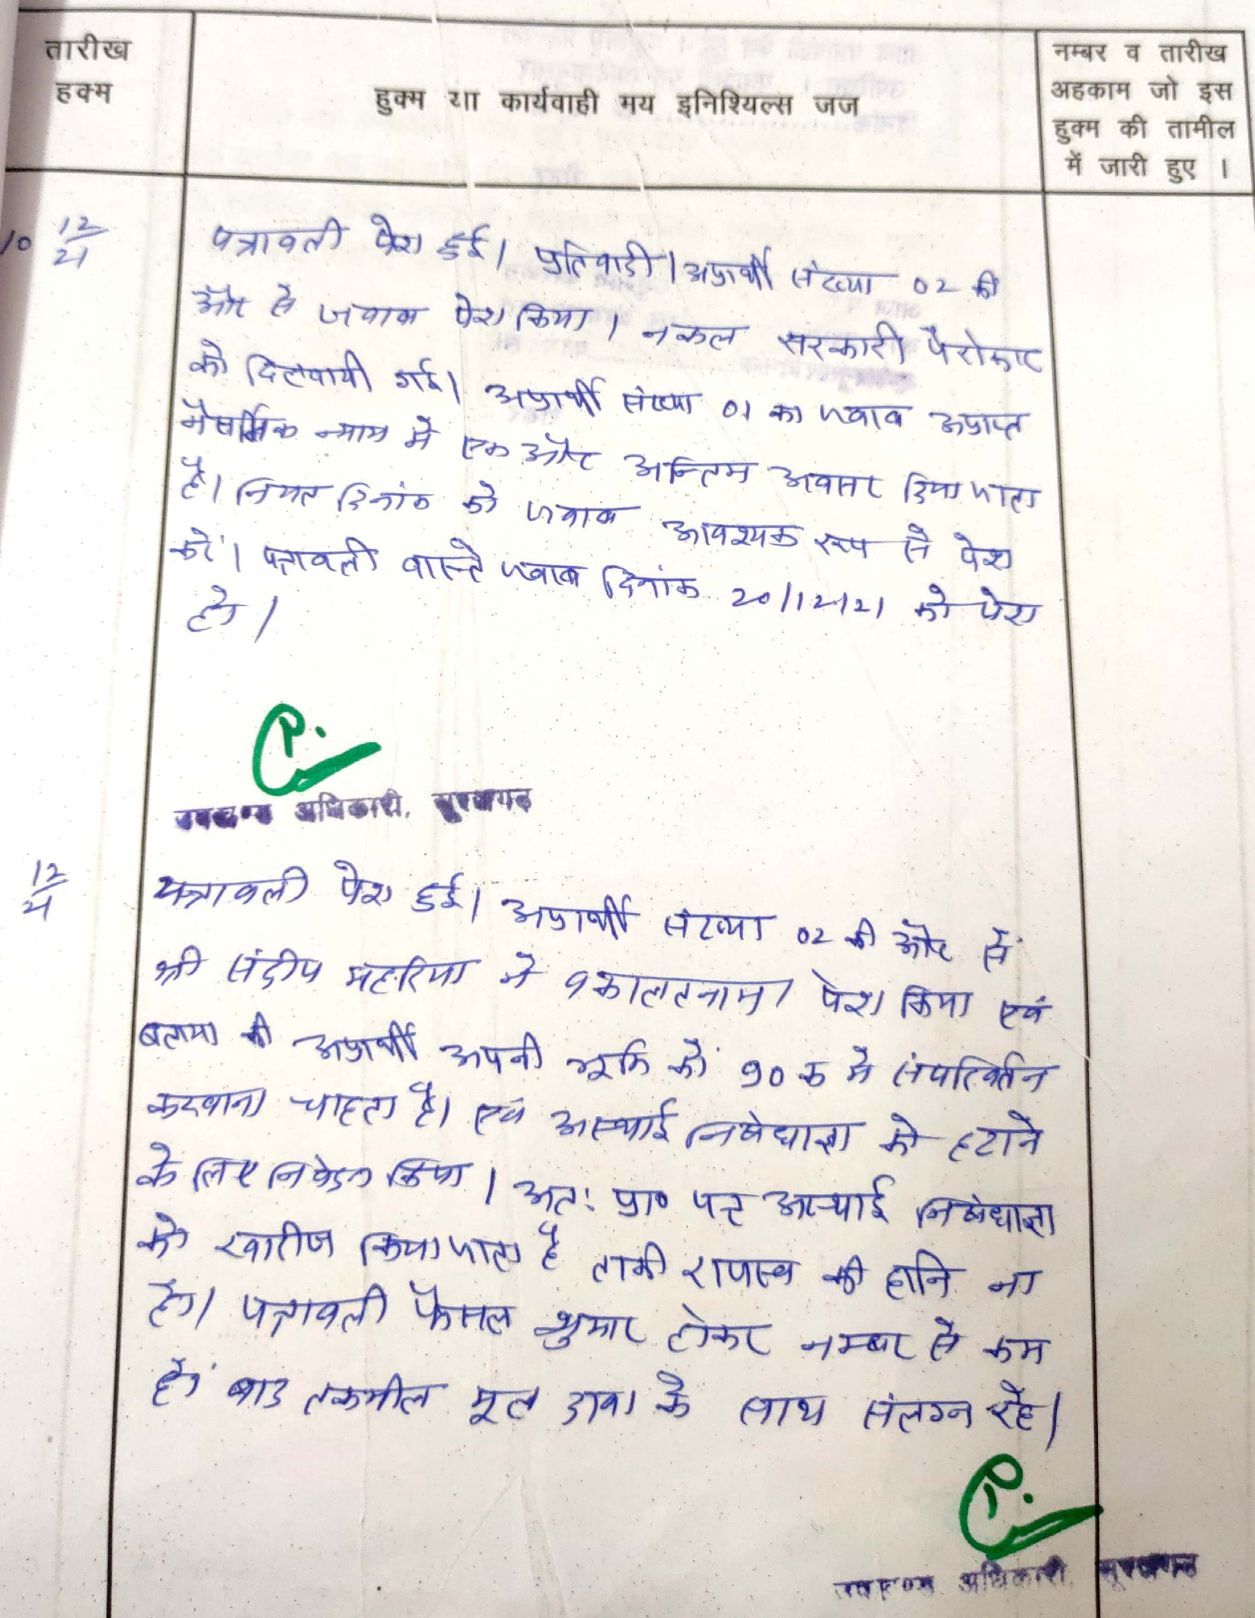 तारीख
हुक्म
हुक्म या कार्यवाही मय इनिशियल्स जज
नम्बर व तारीख
अहकाम जो इस
हुक्म की तामील
में जारी हुए ।
10 12/21
पत्रावली पेश हुई। प्रतिवादी/अप्रार्थी संख्या 02 की
और से जवाब पेश किया। नकल सरकारी पैरोकार
को दिलवायी गई। अप्रार्थी संख्या 01 का जवाब अप्राप्त
नैसर्गिक न्याय में एक और अन्तिम अवसर दिया जाता
है। नियत दिनांक को जवाब आवश्यक रूप से पेश
करें। पत्रावली वास्ते जवाब दिनांक 20/12/21 को पेश
हो।
उपखण्ड अधिकारी, सूरजगढ़
12/21
पत्रावली पेश हुई। अप्रार्थी संख्या 02 की और से
श्री संदीप महरिया ने वकालतनामा पेश किया एवं
बताया की अप्रार्थी अपनी भूमि को 90 क में संपरिवर्तन
करवाना चाहता है। एवं अस्थाई निषेधाज्ञा को हटाने
के लिए निवेदन किया। अतः प्रा० पत्र अस्थाई निषेधाज्ञा
को खारीज किया जाता है ताकी राजस्व की हानि ना
हो। पत्रावली फैसल शुमार होकर नम्बर से कम
हो बाद तकमील मूल दावा के साथ संलग्न रहे।
उपखण्ड अधिकारी, सूरजगढ़